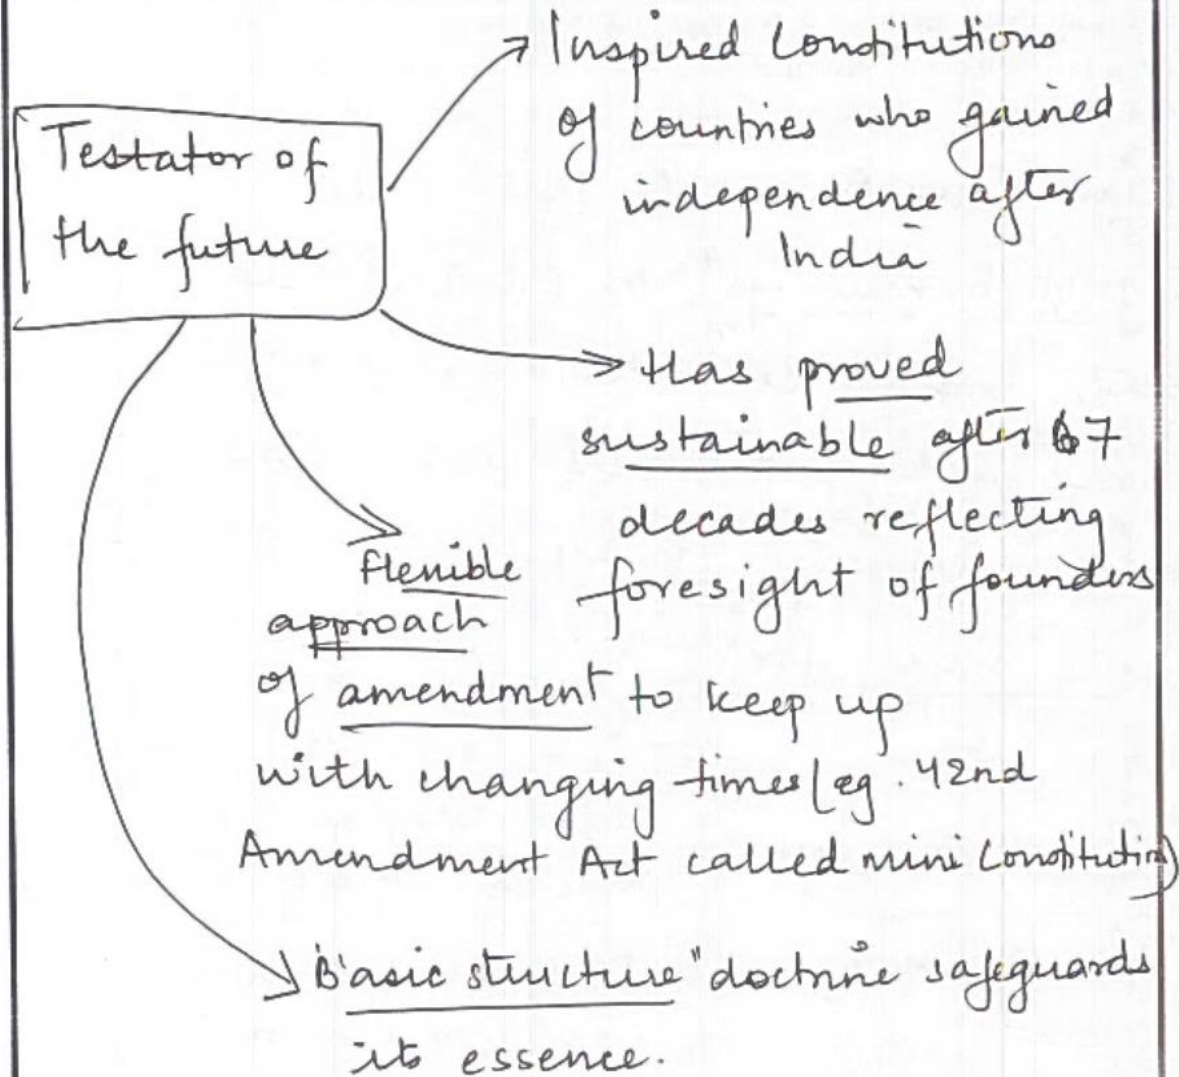 Testator of
the future
Inspired Constitutions
of countries who gained
independence after
India
Has proved
sustainable after 7
decades reflecting
foresight of founders
flexible
approach
of amendment to keep up
with changing times (eg. 42nd
Amendment Act called mini Constitution)
"Basic structure" doctrine safeguards
its essence.